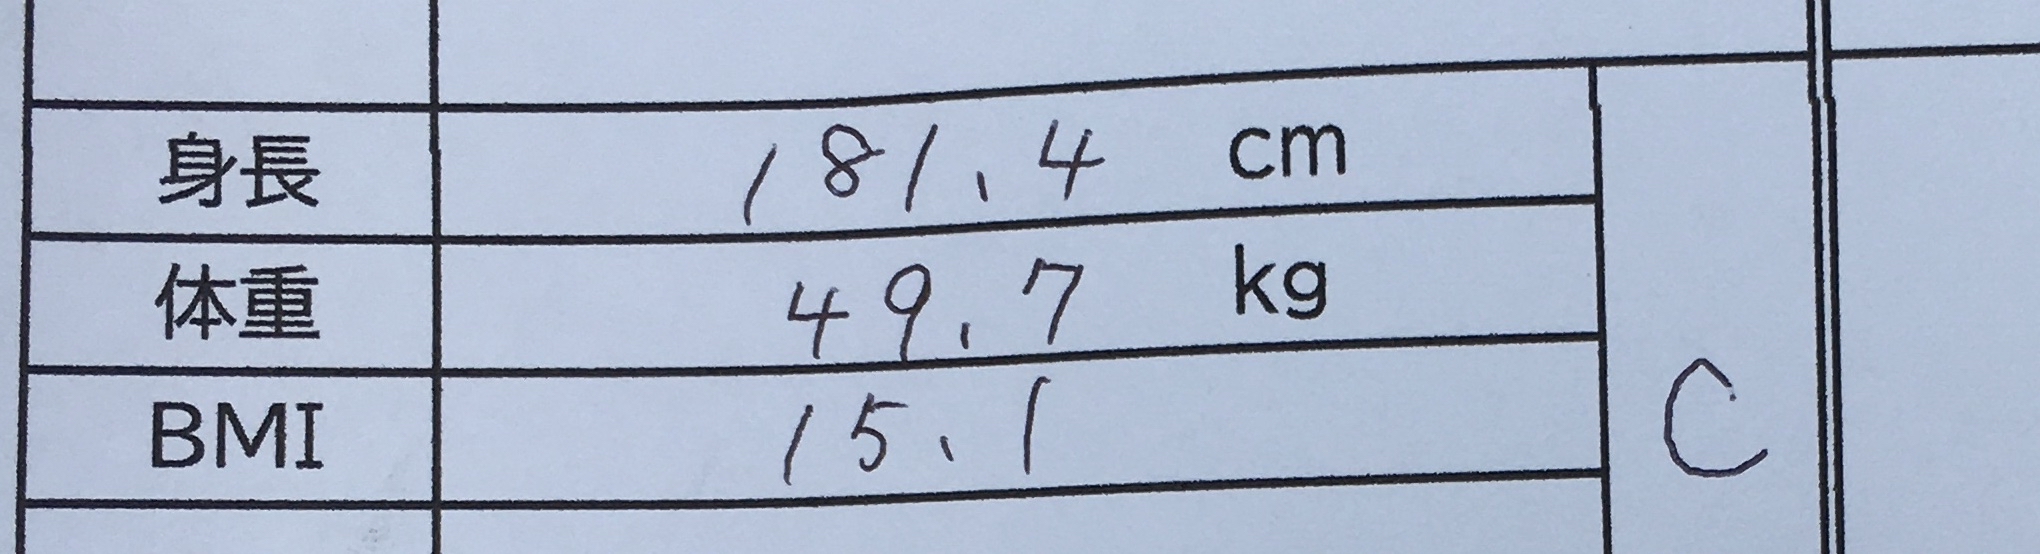 身長 181.4 cm
体重 49.7 kg
BMI 15.1
C